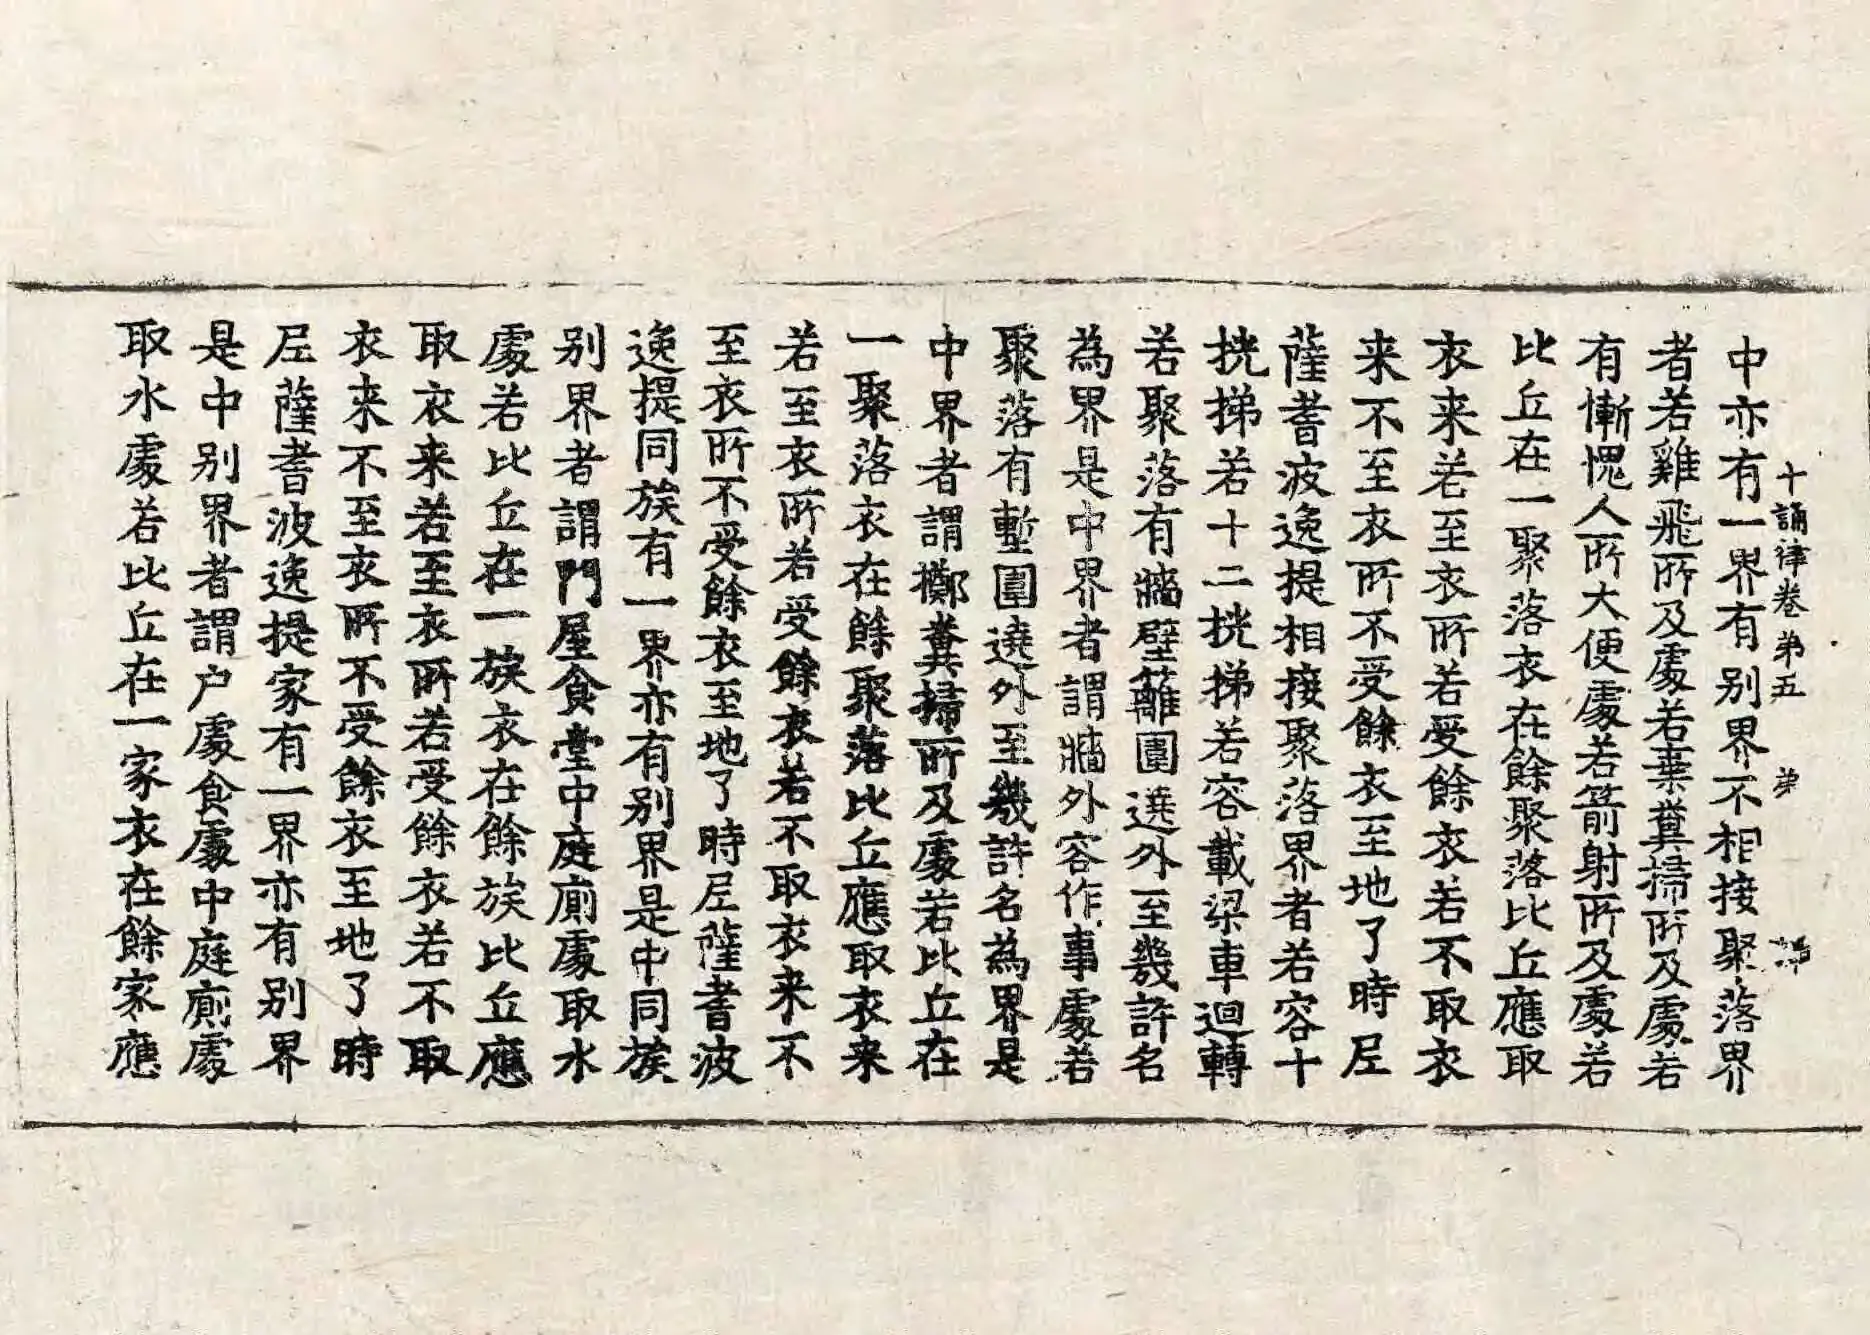 十誦律卷弟五　弟
中亦有一界有别界不相接聚落界
者若雞飛所及處若棄糞掃所及處若
有慚愧人所大便處若箭射所及處若
比丘在一聚落衣在餘聚落比丘應取
衣来若至衣所若受餘衣若不取衣
来不至衣所不受餘衣至地了時尼
薩耆波逸提相接聚落界者若容十
挄梯若十二挄梯若容載梁車迴轉
若聚落有牆壁籬圍遶外至幾許名
為界是中界者謂牆外容作事處若
聚落有塹圍遶外至幾許名為界是
中界者謂擲糞掃所及處若比丘在
一聚落衣在餘聚落比丘應取衣来
若至衣所若受餘衣若不取衣来不
至衣所不受餘衣至地了時尼薩耆波
逸提同族有一界亦有别界是中同族
别界者謂門屋食堂中庭廁處取水
處若比丘在一族衣在餘族比丘應
取衣来若至衣所若受餘衣若不取
衣来不至衣所不受餘衣至地了時
尼薩耆波逸提家有一界亦有别界
是中别界者謂户處食處中庭廁處
取水處若比丘在一家衣在餘家應